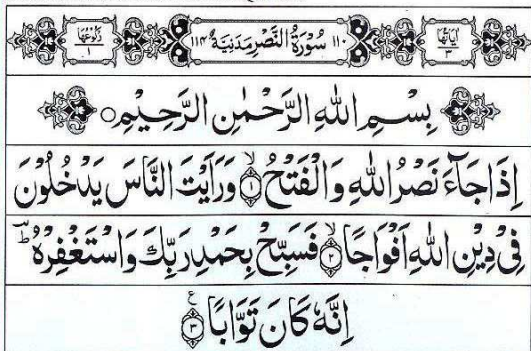 اٰیَاتُهَا ٣ ١١٠ سُوْرَةُ النَّصْرِ مَدَنِیَّةٌ ١١٤ رُكُوْعُهَا ١
بِسْمِ اللهِ الرَّحْمٰنِ الرَّحِیْمِ ○
اِذَا جَآءَ نَصْرُ اللهِ وَ الْفَتْحُ ۙ﴿١﴾ وَ رَاَیْتَ النَّاسَ یَدْخُلُوْنَ
فِیْ دِیْنِ اللهِ اَفْوَاجًا ۙ﴿٢﴾ فَسَبِّحْ بِحَمْدِ رَبِّكَ وَ اسْتَغْفِرْهُ ؕ
اِنَّهٗ كَانَ تَوَّابًا ﴿٣﴾ ع